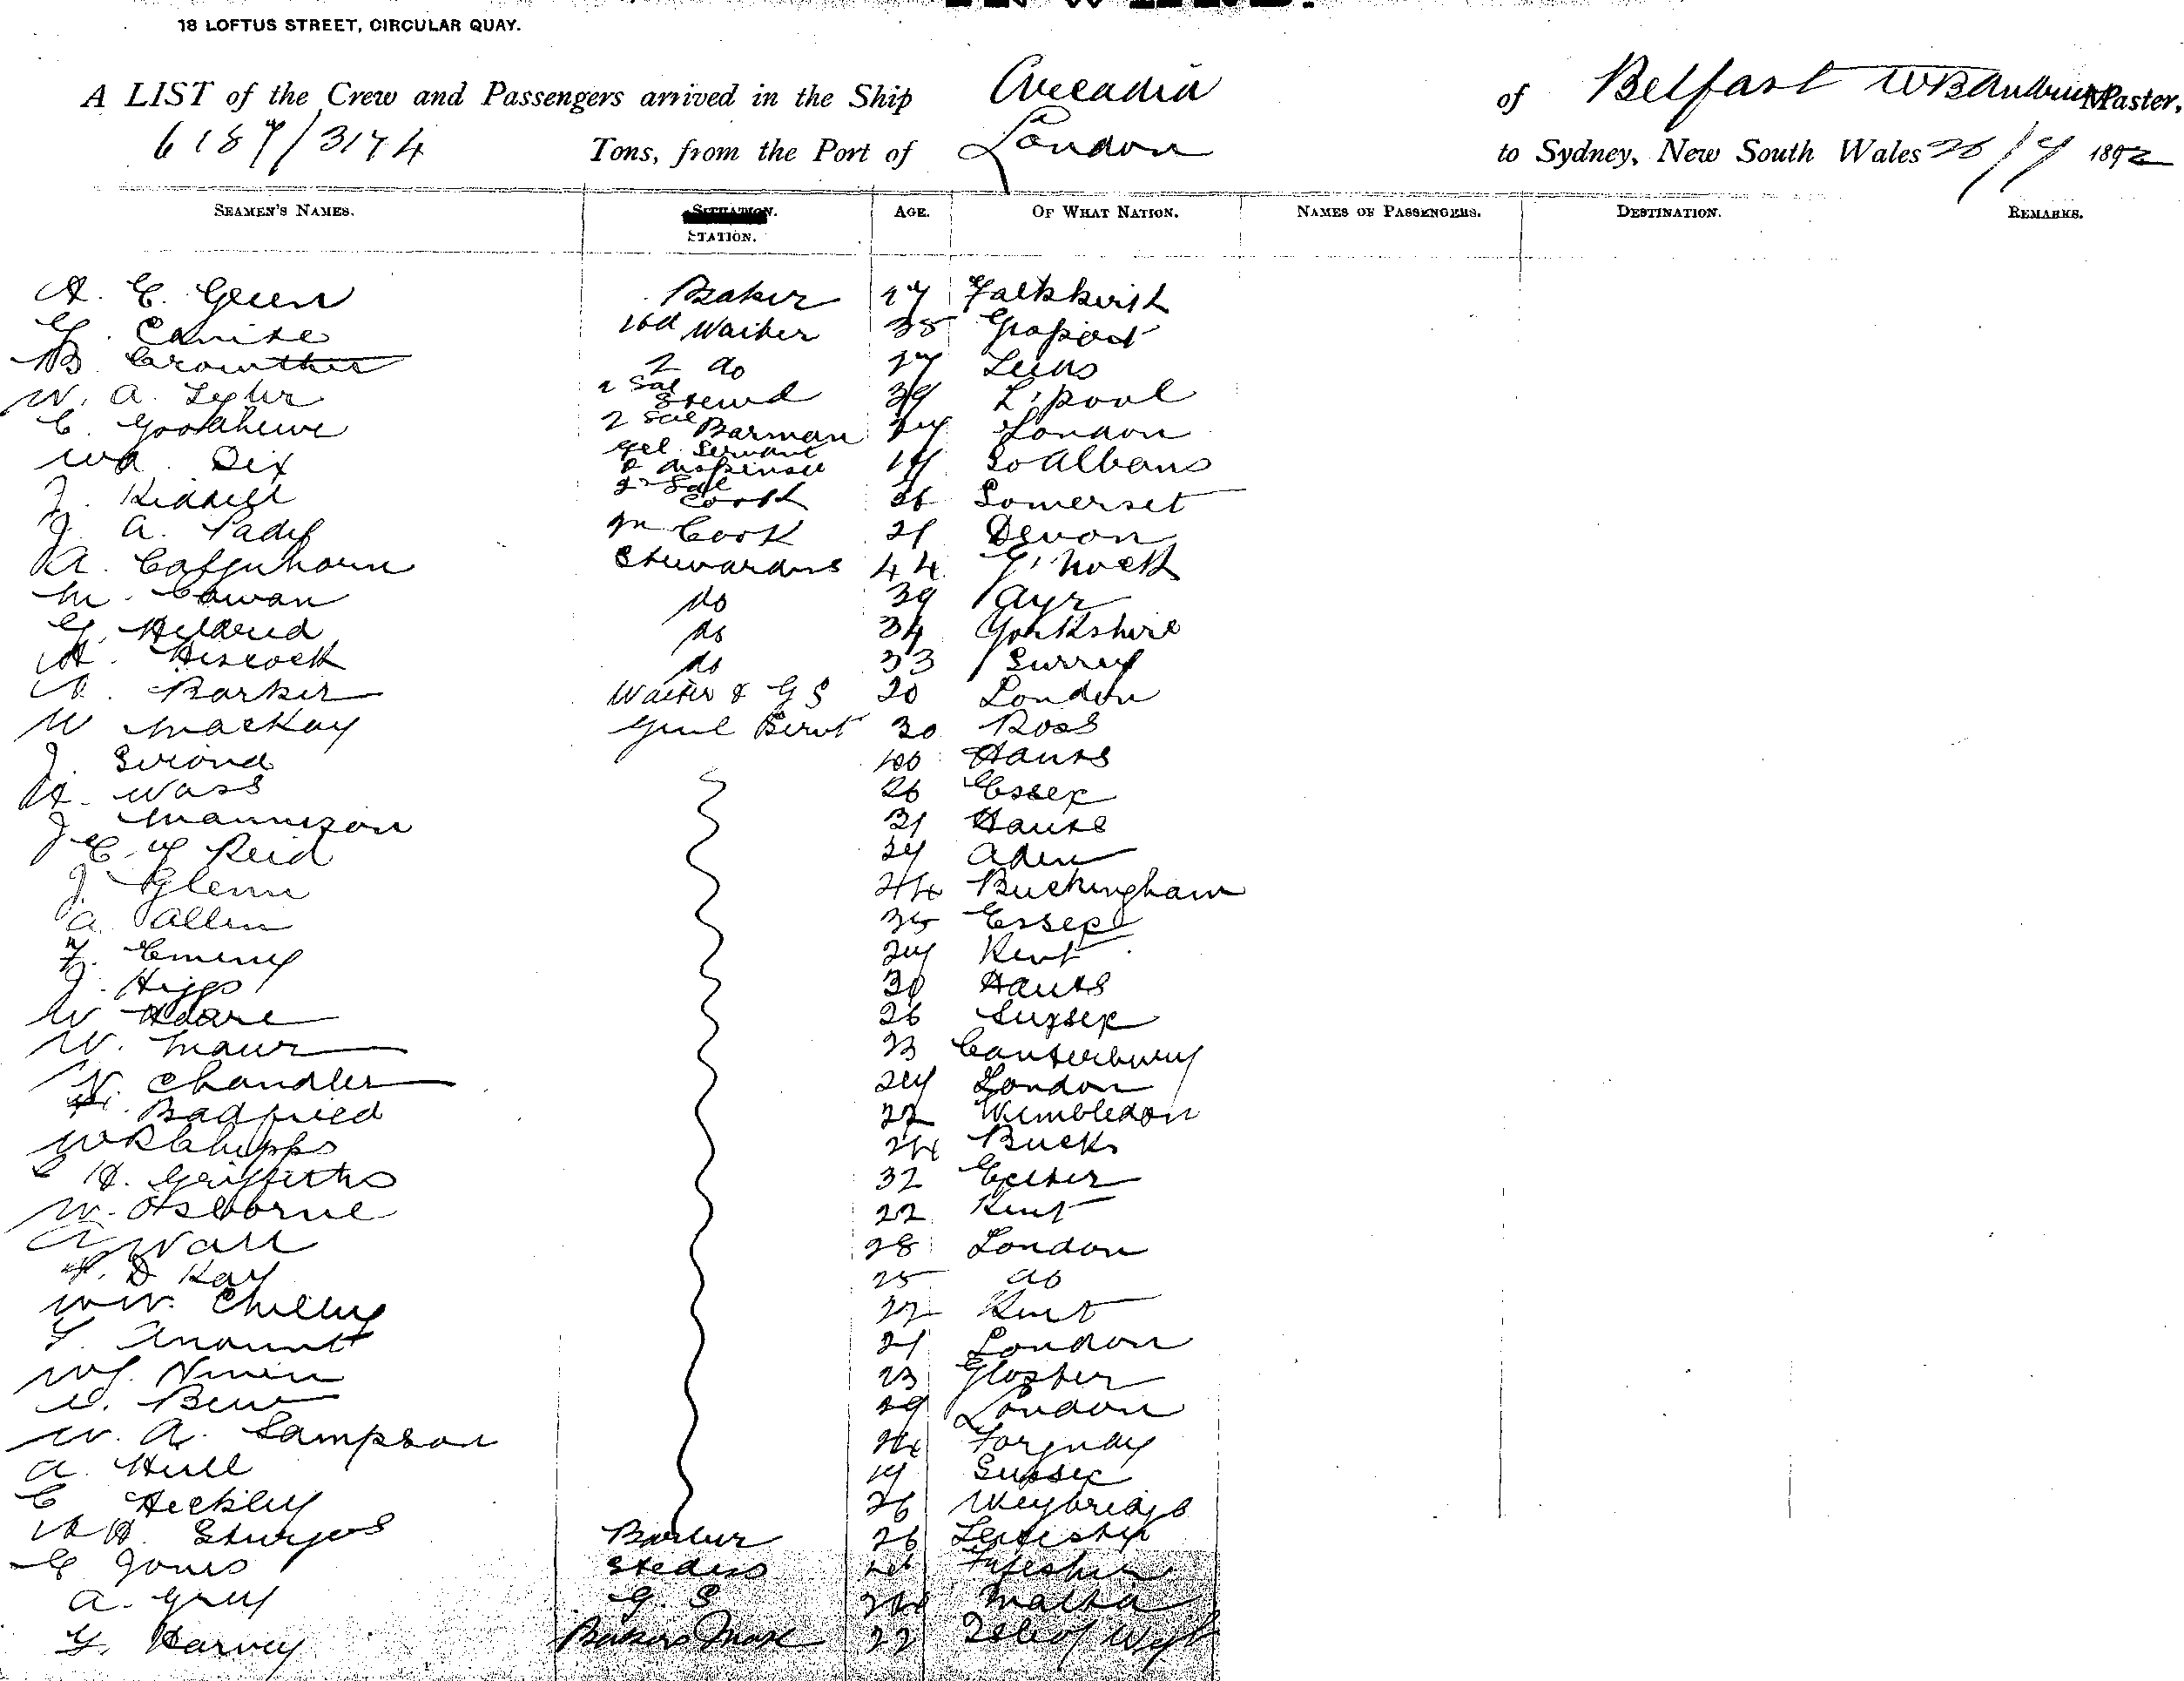 18 LOFTUS STREET, CIRCULAR QUAY.
A LIST of the Crew and Passengers arrived in the Ship Arcadia of Belfast Master,
6187/3174 Tons, from the Port of London to Sydney, New South Wales 26/9 1892
SEAMEN'S NAMES. STATION. AGE. OF WHAT NATION. NAMES OF PASSENGERS. DESTINATION. REMARKS.
A. E. Green Baker 27 Falkkirk
Waiter 35 Gosport
B Crowther 2 do 27 Leeds
W. A. 2 Sal Stewd 39 L'pool
C. 2 Sal Barman 27 London
Wm Dix Gel Servant & dispenser 19 St Albans
J. Riddell 2 Sal Cook 26 Somerset
J. A. Cook 21 Devon
A. Colquhoun Stewardess 44 G'nock
M. Cowan do 39 Ayr
G. Hildred do 34 Yorkshire
A. Hiscock do 33 Surrey
A. Barker Waiter & G S 20 London
W Mackay Genl Servt 30 Ross
J. Hants
H. Wass 26 Essex
J. Mannison 31 Hants
J C. Reid 24 Aden
J. Glenn 24 Buckingham
A. Allen 35 Essex
F. Emeny 24 Kent
J. Higgs 30 Hants
W Hoare 26 Sussex
W. 23 Canterbury
N. Chandler 24 London
22 Wimbledon
W R Chipps 24 Bucks
C H. Griffiths 32 Exeter
W. Osborne 22 Kent
A Wall 28 London
D Kay 25 do
W W. 22 Kent
T. Mount 21 London
W J. 23 Gloster
29 London
W. A. Sampson 24 Torquay
A. Hull 19 Sussex
C Heckley 26 Weybridge
H. Sturges Barber 26 Leicester
C Jones Stedess Fifeshire
A. Grey G. S 24 Malta
G. Harvey Bakers Mate 22 Isle of Wyt